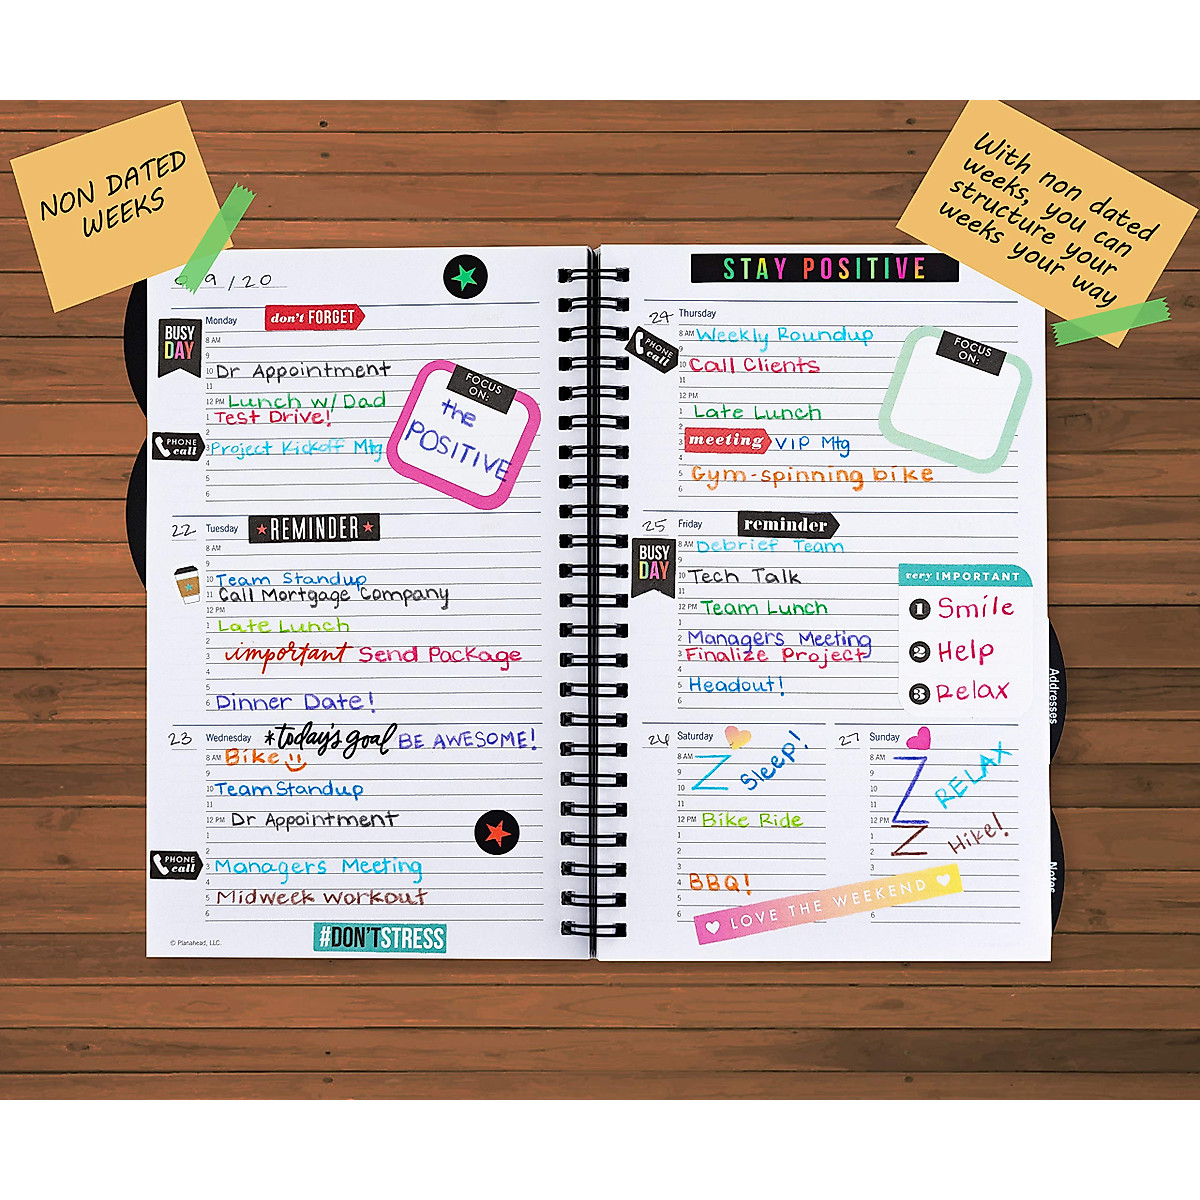 NON DATED
WEEKS
With non dated
weeks, you can
structure your
weeks your way
9/20
Monday
don't FORGET
BUSY
DAY
8 AM
9
10 Dr Appointment
11
12 PM Lunch w/ Dad
1 Test Drive!
2
PHONE
call
3 Project Kickoff Mtg
4
5
6
FOCUS
ON:
the
POSITIVE
22 Tuesday
★REMINDER★
8 AM
9
10 Team Standup
11 Call Mortgage Company
12 PM
1 Late Lunch
2
3 important Send Package
4
5
6 Dinner Date!
23 Wednesday
*today's goal BE AWESOME!
8 AM Bike
9
10 Team Standup
11
12 PM Dr Appointment
1
2
PHONE
call
3 Managers Meeting
4
5 Midweek workout
6
© Planahead, LLC.
#DON'TSTRESS
STAY POSITIVE
24 Thursday
PHONE
call
8 AM Weekly Roundup
9
10 Call Clients
11
12 PM
1 Late Lunch
2
3 meeting VIP Mtg
4
5 Gym-spinning bike
6
FOCUS
ON:
25 Friday
reminder
BUSY
DAY
8 AM Debrief Team
9
10 Tech Talk
11
12 PM Team Lunch
1
2 Managers Meeting
3 Finalize Project
4
5 Headout!
6
very IMPORTANT
1 Smile
2 Help
3 Relax
26 Saturday
8 AM
9
10
11
12 PM Bike Ride
1
2
3
4 BBQ!
5
6
Z Sleep!
27 Sunday
8 AM
9
10
11
12 PM
1
2
3
6
Z RELAX
Z Hike!
LOVE THE WEEKEND
Addresses
Notes